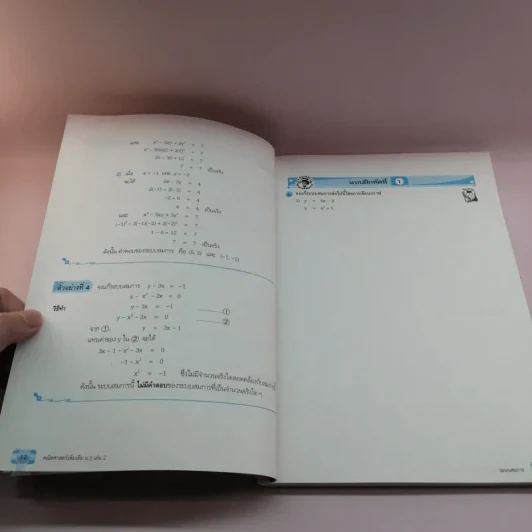 และ x² – 3xy + 3y² = 7
= 7
= 7
7 = 7 เป็นจริง
2) เมื่อ x = -1 และ y = -2
จะได้ 2x – 3y = 4
2(-1) – 3(-2) = 4
-2 + 6 = 4
4 = 4 เป็นจริง
และ x² – 3xy + 3y² = 7
(-1)² – 3(-1)(-2) + 3(-2)² = 7
1 – 6 + 12 = 7
7 = 7 เป็นจริง
ดังนั้น คำตอบของระบบสมการ คือ และ (-1, -2)
ตัวอย่างที่ 4 จงแก้ระบบสมการ y – 3x = -1
y – x² – 3x = 0
วิธีทำ y – 3x = -1 ①
y – x² – 3x = 0 ②
จาก ① y = 3x – 1
แทนค่าของ y ใน ② จะได้
3x – 1 – x² – 3x = 0
-1 – x² = 0
x² = -1 ซึ่งไม่มีจำนวนจริงใดสอดคล้องกับสมการ
ดังนั้น ระบบสมการนี้ ไม่มีคำตอบของระบบสมการที่เป็นจำนวนจริงใด ๆ
12 คณิตศาสตร์เพิ่มเติม ม.3 เล่ม 2
แบบฝึกหัดที่ 1
จงแก้ระบบสมการต่อไปนี้โดยการเขียนกราฟ
1) y = 3x – 2
y = x² + 1
ระบบสมการ